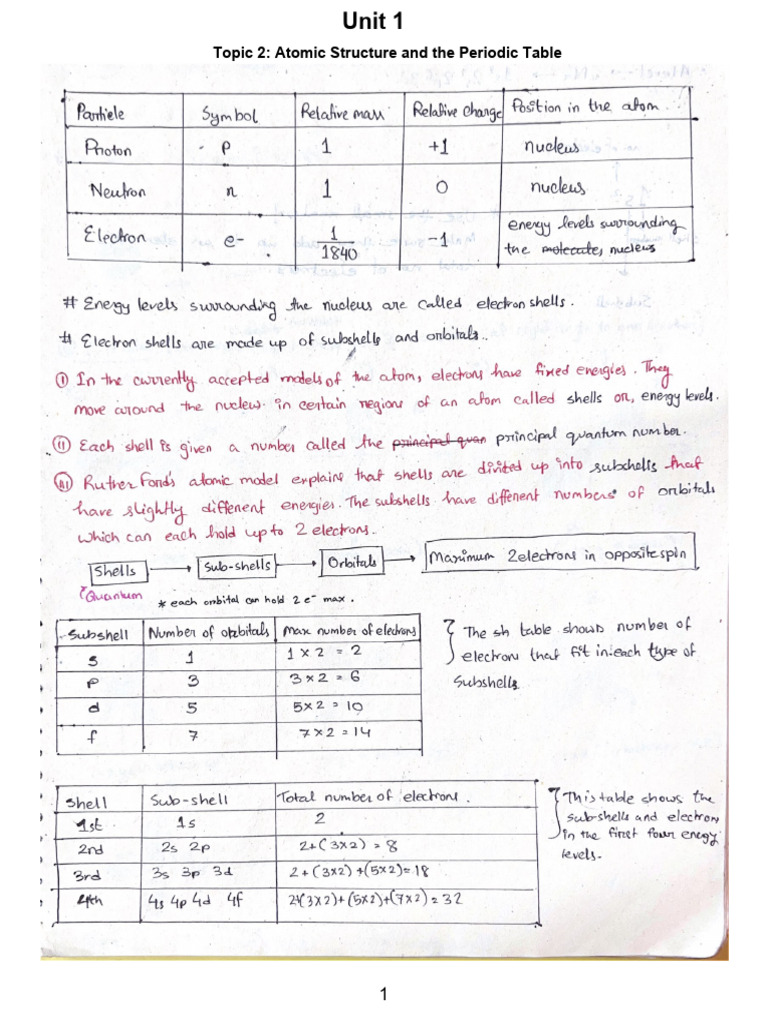 Unit 1
Topic 2: Atomic Structure and the Periodic Table
Particle Symbol Relative mass Relative charge Position in the atom
Proton P 1 +1 nucleus
Neutron n 1 0 nucleus
Electron e- 1/1840 -1 energy levels surrounding the molecule, nucleus
# Energy levels surrounding the nucleus are called electron shells.
# Electron shells are made up of subshells and orbitals.
(I) In the currently accepted models of the atom, electrons have fixed energies. They
move around the nucleus in certain regions of an atom called shells or, energy levels.
(II) Each shell is given a number called the principal quan principal quantum number.
(III) Ruther Ford's atomic model explains that shells are divided up into subshells that
have slightly different energies. The subshells have different numbers of orbitals
which can each hold up to 2 electrons.
Shells → Sub-shells → Orbitals → Maximum 2 electrons in opposite spin
Quantum
* each orbital can hold 2 e- max.
Subshell Number of orbitals Max number of electrons
s 1 1 × 2 = 2
p 3 3 × 2 = 6
d 5 5 × 2 = 10
f 7 7 × 2 = 14
The sh table shows number of
electron that fit in each type of
Subshells
Shell Sub-shell Total number of electrons.
1st 1s 2
2nd 2s 2p 2+(3×2) = 8
3rd 3s 3p 3d 2+(3×2)+(5×2)=18
4th 4s 4p 4d 4f 2+(3×2)+(5×2)+(7×2)=32
This table shows the
sub-shells and electron
in the first four energy
levels.
1